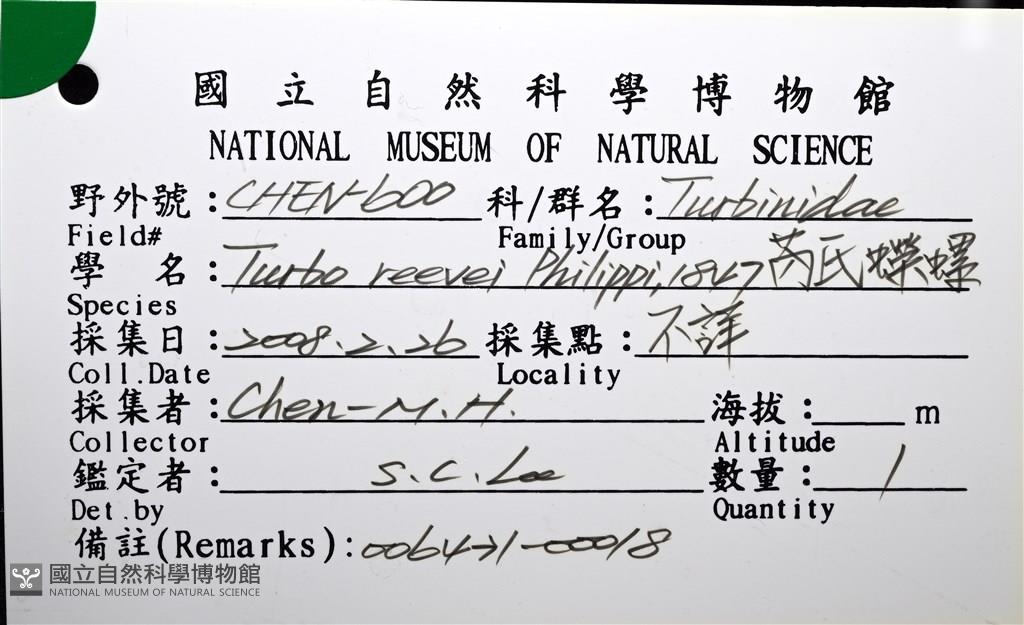 國立自然科學博物館
NATIONAL MUSEUM OF NATURAL SCIENCE
野外號：CHEN-600 科/群名：Turbinidae
Field# Family/Group
學名：Turbo reevei Philippi, 1847 芮氏蠑螺
Species
採集日：2008.2.26 採集點：不詳
Coll.Date Locality
採集者：Chen-M.H. 海拔： m
Collector Altitude
鑑定者：S.C.Lee 數量：1
Det.by Quantity
備註(Remarks)：006471-00018
國立自然科學博物館
NATIONAL MUSEUM OF NATURAL SCIENCE